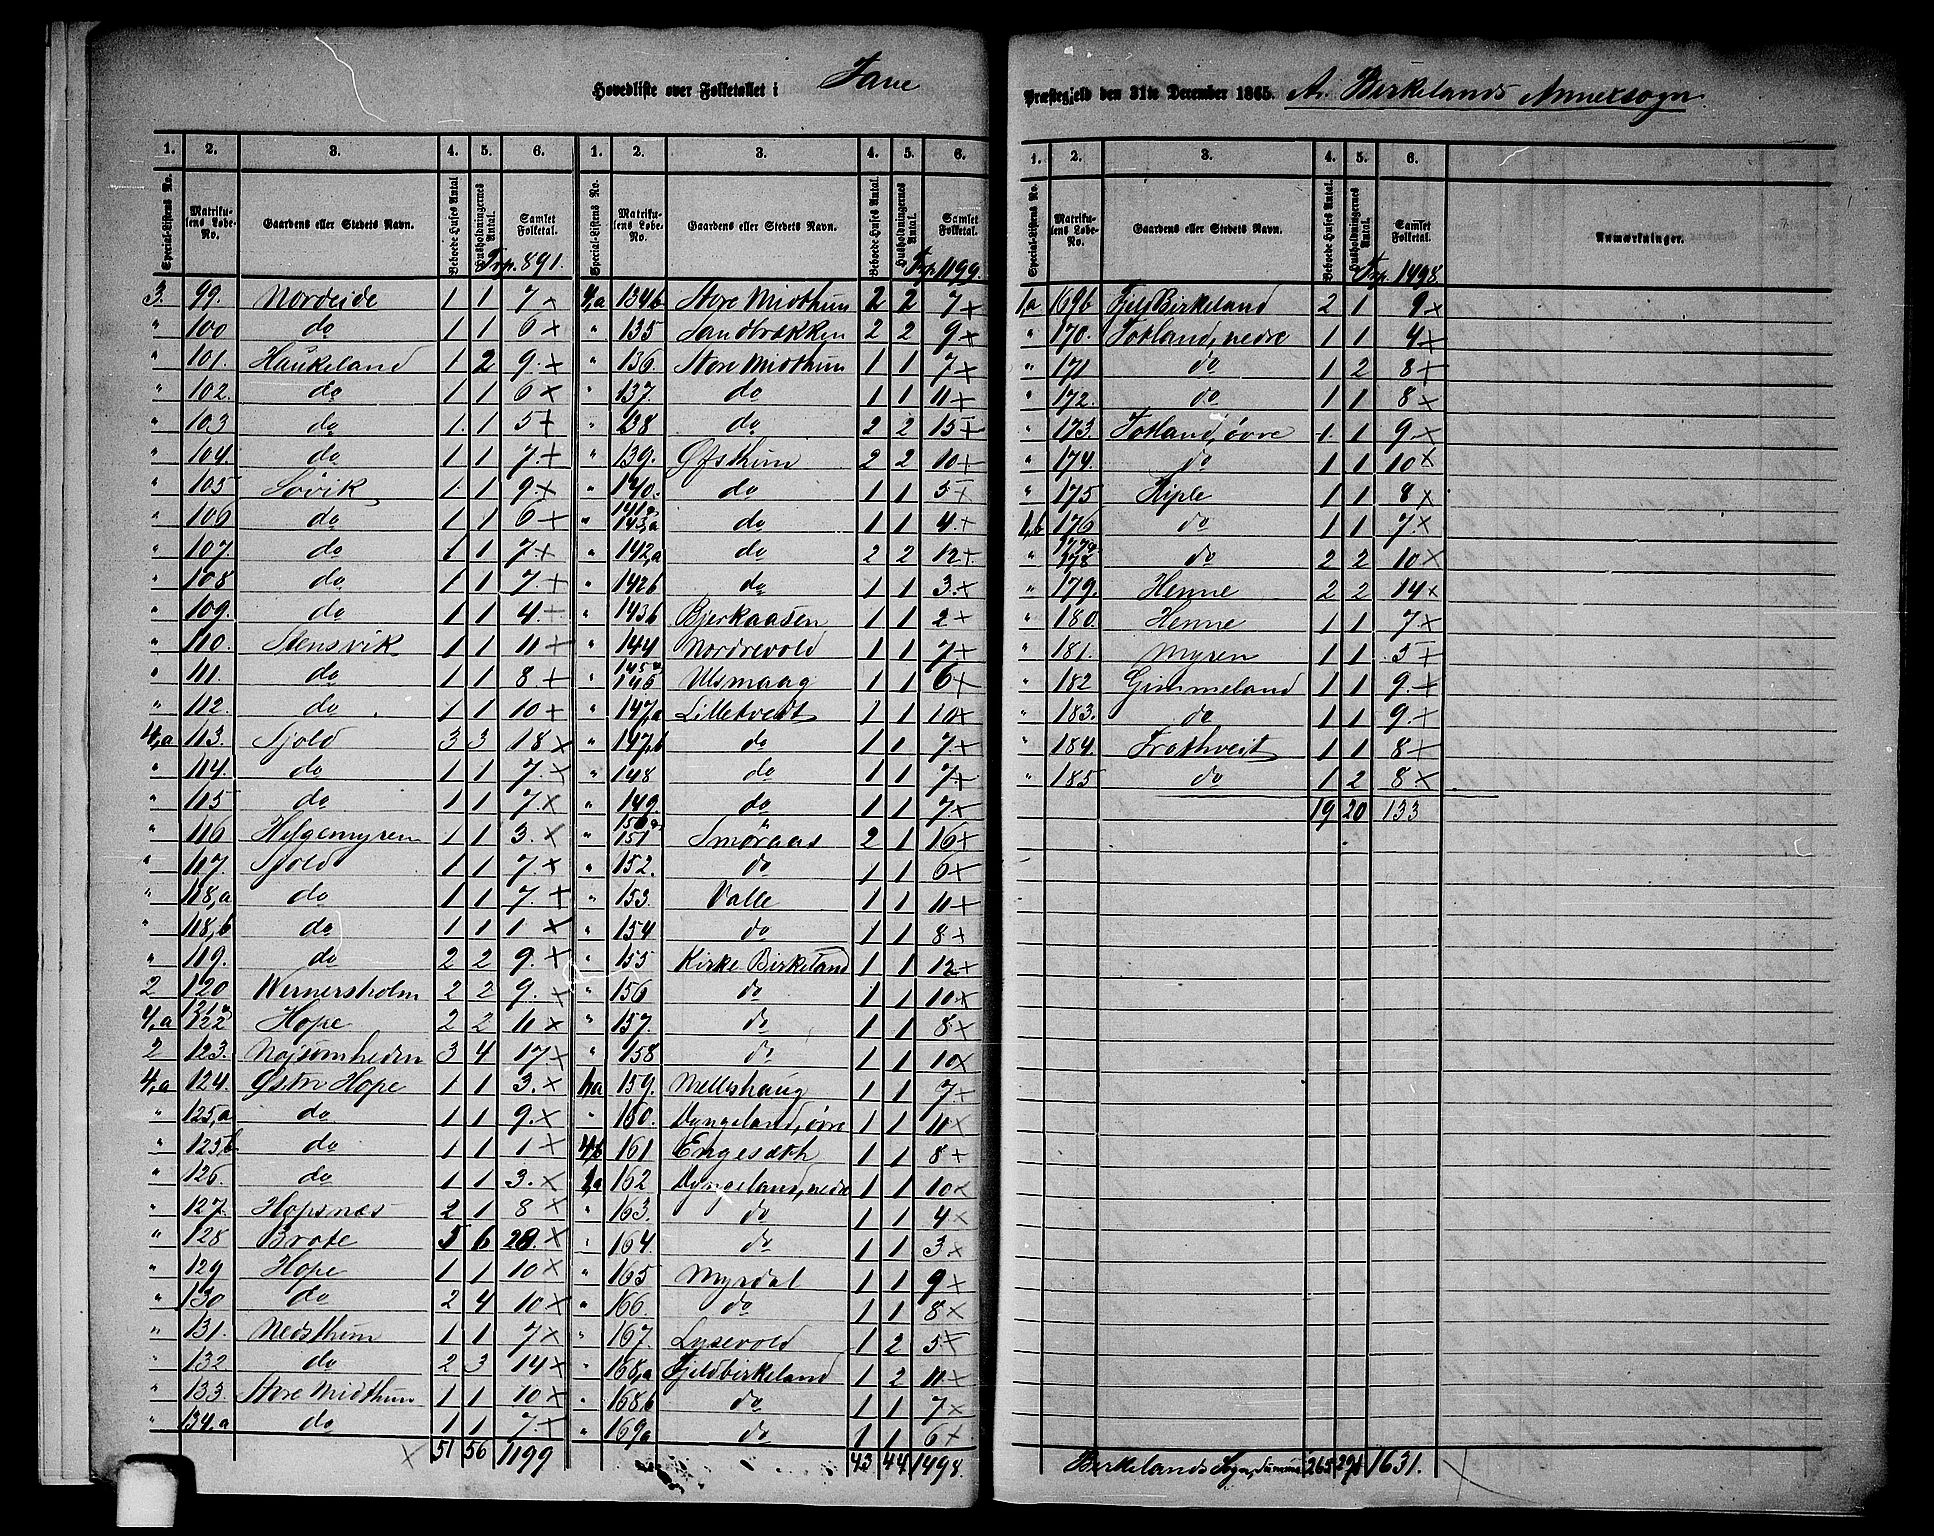 Hovedliste over Folketallet i Fane Præstegjeld den 31te December 1865. A. Birkelands Annexsogn.
1. 2. 3. 4. 5. 6. 1. 2. 3. 4. 5. 6.
Special-Listens No. Matrikulens Løbe-No. Gaardens eller Stedets Navn. Beboede Huses Antal. Husholdningernes Antal. Samlet Folketal. Special-Listens No. Matrikulens Løbe-No. Gaardens eller Stedets Navn. Beboede Huses Antal. Husholdningernes Antal. Samlet Folketal.
Trp. 891. Trp. 1199.
3. 99. Nordeide 1 1 7 × 4,a 134b Store Midthun 2 2 7 ×
" 100 do 1 1 6 × " 135 Sandbrækken 2 2 9 ×
" 101. Haukeland 1 2 9. × " 136. Store Midthun 1 1 7 ×
" 102. do 1 1 6 × " 137. do 1 1 11 +
" 103 do 1 1 5 + " 138 do 2 2 15 +
" 104. do 1 1 7. + " 139. Øfsthun 2 2 10 +
" 105 Søvik 1 1 9. × " 140. do 1 1 5 ×
" 106 do 1 1 6 + " 141a 143a do 1 1 4 +
" 107. do 1 1 7 + " 142,a do 2 2 12 +
" 108 do 1 1 7. + " 142b do 1 1 3. ×
" 109. do 1 1 4. + " 143b Bjerkaasen 1 1 2 ×
" 110. Stensvik 1 1 11 + " 144 Nordrevold 1 1 7 +
" 111. do 1 1 8 + " 145a 146 Ulsmaag 1 1 6 +
" 112. do 1 1 10 + " 147,a Lilletvedt 1 1 10 ×
4,a 113. Sjold 3 3 18 × " 147,b do 1 1 7. ×
" 114. do 1 1 7. × " 148 do 1 1 7. +
" 115 do 1 1 7. × " 149 do 1 1 7. ×
" 116 Helgemyren 1 1 3. × " 150a 151 Smøraas 2 1 16 ×
" 117. Sjold 1 1 7. × " 152. do 1 1 6 ×
" 118,a do 1 1 7. + " 153. Valle 1 1 11 +
" 118,b do 1 1 1 × " 154 do 1 1 8 +
" 119. do 2 2 9. × " 155 Kirke Birkeland 1 1 12 ×
2 120 Wernersholm 2 2 9. × " 156 do 1 1 10 ×
4,a 121a 122 Hope 2 2 11 × " 157. do 1 1 8 ×
2 123. Nøisomheden 3 4 17 × " 158 do 1 1 10 ×
4,a 124. Østre Hope 1 1 3. × 1,a 159. Mellishaug 1 1 7 +
" 125,a do 1 1 9. × " 160. Dyngeland, øvre 1 1 11 ×
" 125b do 1 1 1 × 4,b 161 Engesæth 1 1 8 +
" 126. do 1 1 3. × 1,a 162 Dyngeland, nedre 1 1 10 ×
" 127. Hopsnæs 2 1 8 × " 163. do 1 1 4 ×
" 128 Brote 5 6 28. × " 164. do 1 1 3 ×
" 129 Hope 1 1 10 × " 165 Myrdal 1 1 9 ×
" 130 do 2 4 10 × " 166. do 1 1 8 ×
" 131. Nedsthun 1 1 7 × " 167. Lysevold 1 2 5 ×
" 132 do 2 3 14 × " 168,a Fjeldbirkeland 1 2 11 ×
" 133. Store Midthun 1 1 10 × " 168,b do 1 1 7 ×
" 134,a do 1 1 7. × " 169a do 1 1 6 ×
× 51 56 1199 43 44 1498
1. 2. 3. 4. 5. 6.
Special-Listens No. Matrikulens Løbe-No. Gaardens eller Stedets Navn. Beboede Huses Antal. Husholdningernes Antal. Samlet Folketal. Anmærkninger.
Trp. 1498.
1a 169b Fjeld Birkeland 2 1 9 ×
" 170. Totland, nedre 1 1 4 ×
" 171 do 1 2 8 +
" 172. do 1 1 8 ×
" 173. Totland, øvre 1. 1 9 ×
" 174. do 1 1 10 ×
" 175 Hiple 1 1 8 ×
1,b 176 do 1 1 7. ×
" 177a 178 do 2 2 10 ×
" 179. Henne 2 2 14 ×
" 180. Henne 1 1 7 ×
" 181. Myren 1 1 5 +
" 182 Gimmeland 1 1 9. +
" 183. do 1 1 9. ×
" 184. Frotveit 1 1 8 +
" 185 do 1 2 8. ×
19 20 133
Birkelands Sogn, Summa 265 291 1631.